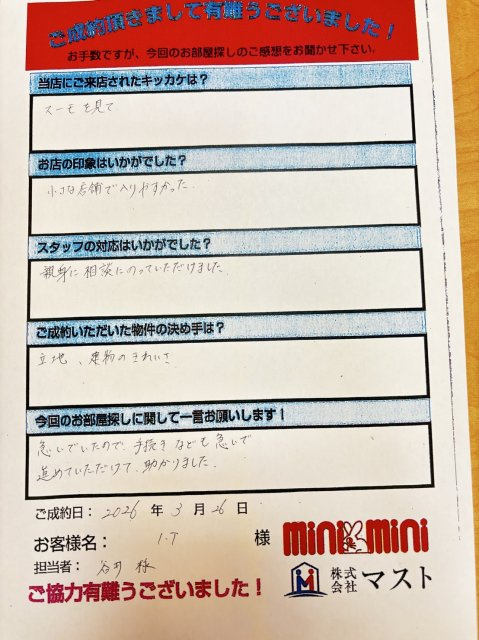 ご成約頂きまして有難うございました！
お手数ですが、今回のお部屋探しのご感想をお聞かせ下さい。
当店にご来店されたキッカケは？
スーモを見て
お店の印象はいかがでした？
小さな店舗で入りやすかった。
スタッフの対応はいかがでした？
親身に相談にのっていただけました。
ご成約いただいた物件の決め手は？
立地、建物のきれいさ
今回のお部屋探しに関して一言お願いします！
急いでいたので、手続きなども急いで
進めていただけて、助かりました。
ご成約日： 2026 年 3 月 26 日
お客様名： I.T 様
担当者： 様
ご協力有難うございました！
mini mini
株式会社 マスト